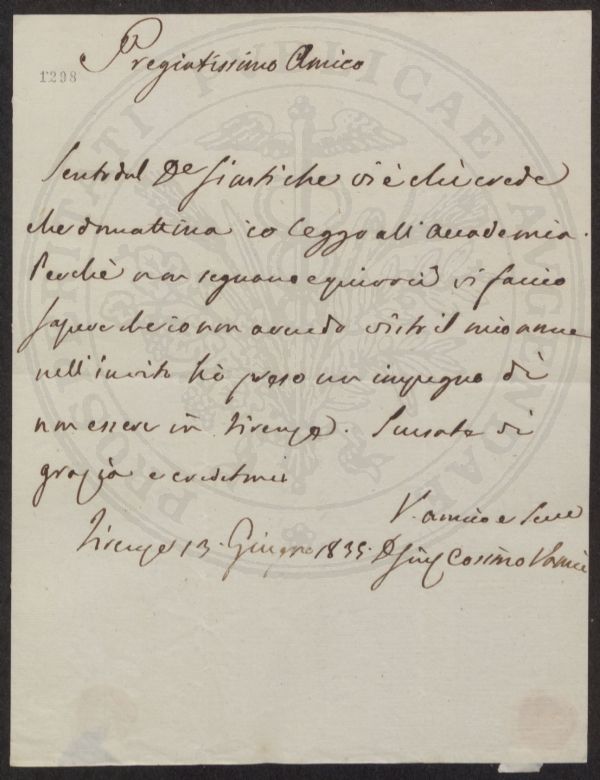 1298
Pregiatissimo Amico
Sento dal Dr Giusti che vi è chi crede
che domattina io leggo all'Accademia.
Perchè non seguano equivoci vi faccio
sapere che io non avendo visto il mio nome
nell'invito hò preso un impegno di
non essere in Firenze. Scusate di
grazia e credetemi
V. amico e Serv
Firenze 13. Giugno 1835. D Gius Cosimo Vanni
PROSPERITATI PUBLICAE AUGENDAE